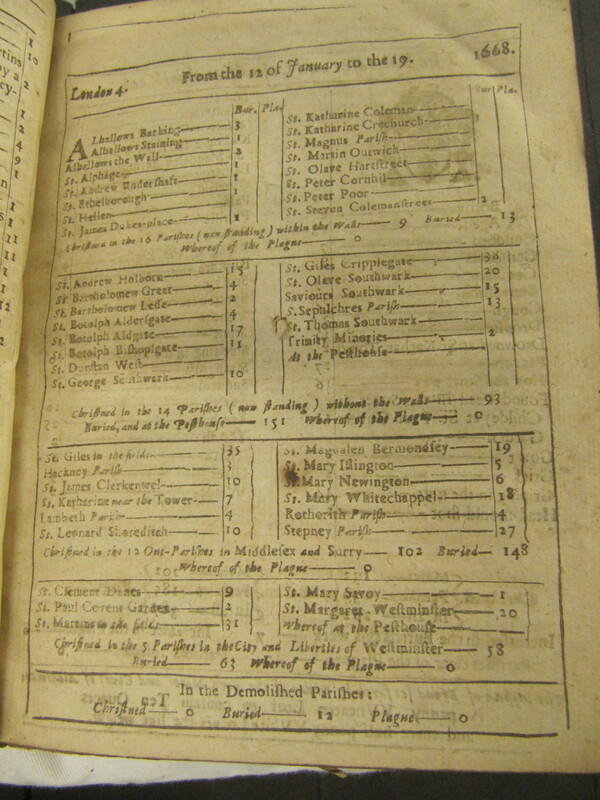 London 4. From the 12 of January to the 19. 1668.
Bur. Pla.
Alhallows Barking 3
Alhallows Staining 1
Alhallows the Wall 2
St. Alphage 1
St. Andrew Undershaft 1
St. Ethelborough 1
St. Hellen 1
St. James Dukes-place 1
Bur Pla.
St. Katharine Coleman
St. Katharine Creechurch 1
St. Magnus Parish
St. Martin Outwich
St. Olave Hartstreet
St. Peter Cornhil
St. Peter Poor
St. Steven Colemanstreet 2
Christned in the 16 Parishes (now standing) within the Walls 9 Buried 13
Whereof of the Plague 0
St. Andrew Holborn 15
St. Bartholomew Great 4
St. Bartholomew Lesse 2
St. Botolph Aldersgate 4
St. Botolph Aldgate 17
St. Botolph Bishopsgate 11
St. Dunstan West
St. George Southwark 10
St. Giles Cripplegate 38
St. Olave Southwark 20
Saviours Southwark 15
S. Sepulchres Parish 13
St. Thomas Southwark
Trinity Minories 2
At the Pesthouse
Christned in the 14 Parishes (now standing) without the Walls 93
Buried, and at the Pesthouse 151 Whereof of the Plague 0
St. Giles in the fields 35
Hackney Parish 3
St. James Clerkenwel 10
St. Katharine near the Tower 7
Lambeth Parish 4
St. Leonard Shoreditch 10
St. Magdalen Bermondsey 19
St. Mary Islington 5
St. Mary Newington 6
St. Mary Whitechappel 18
Rotherith Parish 4
Stepney Parish 27
Christned in the 12 Out-Parishes in Middlesex and Surry 102 Buried 148
Whereof of the Plague 0
St. Clement Danes 9
St. Paul Covent Garden 2
St. Martins in the fields 31
St. Mary Savoy 1
St. Margaret Westminster 20
Whereof at the Pesthouse
Christned in the 5 Parishes in the City and Liberties of Westminster 58
Buried 63 Whereof of the Plague 0
In the Demolished Parishes:
Christned 0 Buried 12 Plague 0